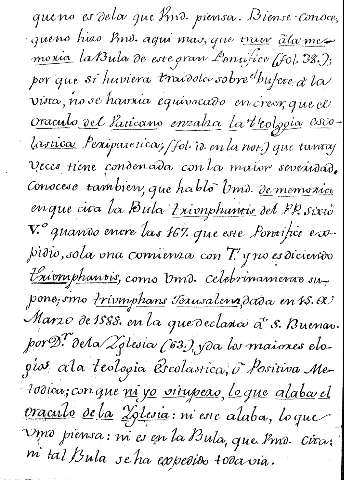 que no es de la que Vmd. piensa. Biense conoce,
que no hizo Vmd. aqui mas, que traer â la me-
moria la Bula de este gran Pontifice (fol. 38.);
por que si huviera traidola sobre el bufete â la
vista, no se havria equivocado en creer, que el
oraculo del Vaticano enzalza la teologia esco-
lastica Peripatetica, (fol. id. en la not.) que tantas
veces tiene condenada con la maior severidad.
Conocese tambien, que habló Vmd. de memoria
en que cita la Bula trionphantis del PP. Sixto
V.º quando entre las 167. que este Pontifice ex-
pidio, sola una comienza con T. y no es diciendo
trionphantis, como Vmd. celebrinamente su-
pone; smo triumphans Jerusalem, dada en 15. de
Marzo de 1588. en la que declara â S. Buenav.
por D.r de la Yglesia (63.), y da los maiores elo-
gios a la teologia Escolastica, ô Positiva Me-
todica; con que ni yo vitupero, lo que alaba el
oraculo de la Yglesia: ni este alaba, lo que
Vmd piensa: ni es en la Bula, que Vmd. cita:
ni tal Bula se ha expedido todavia.